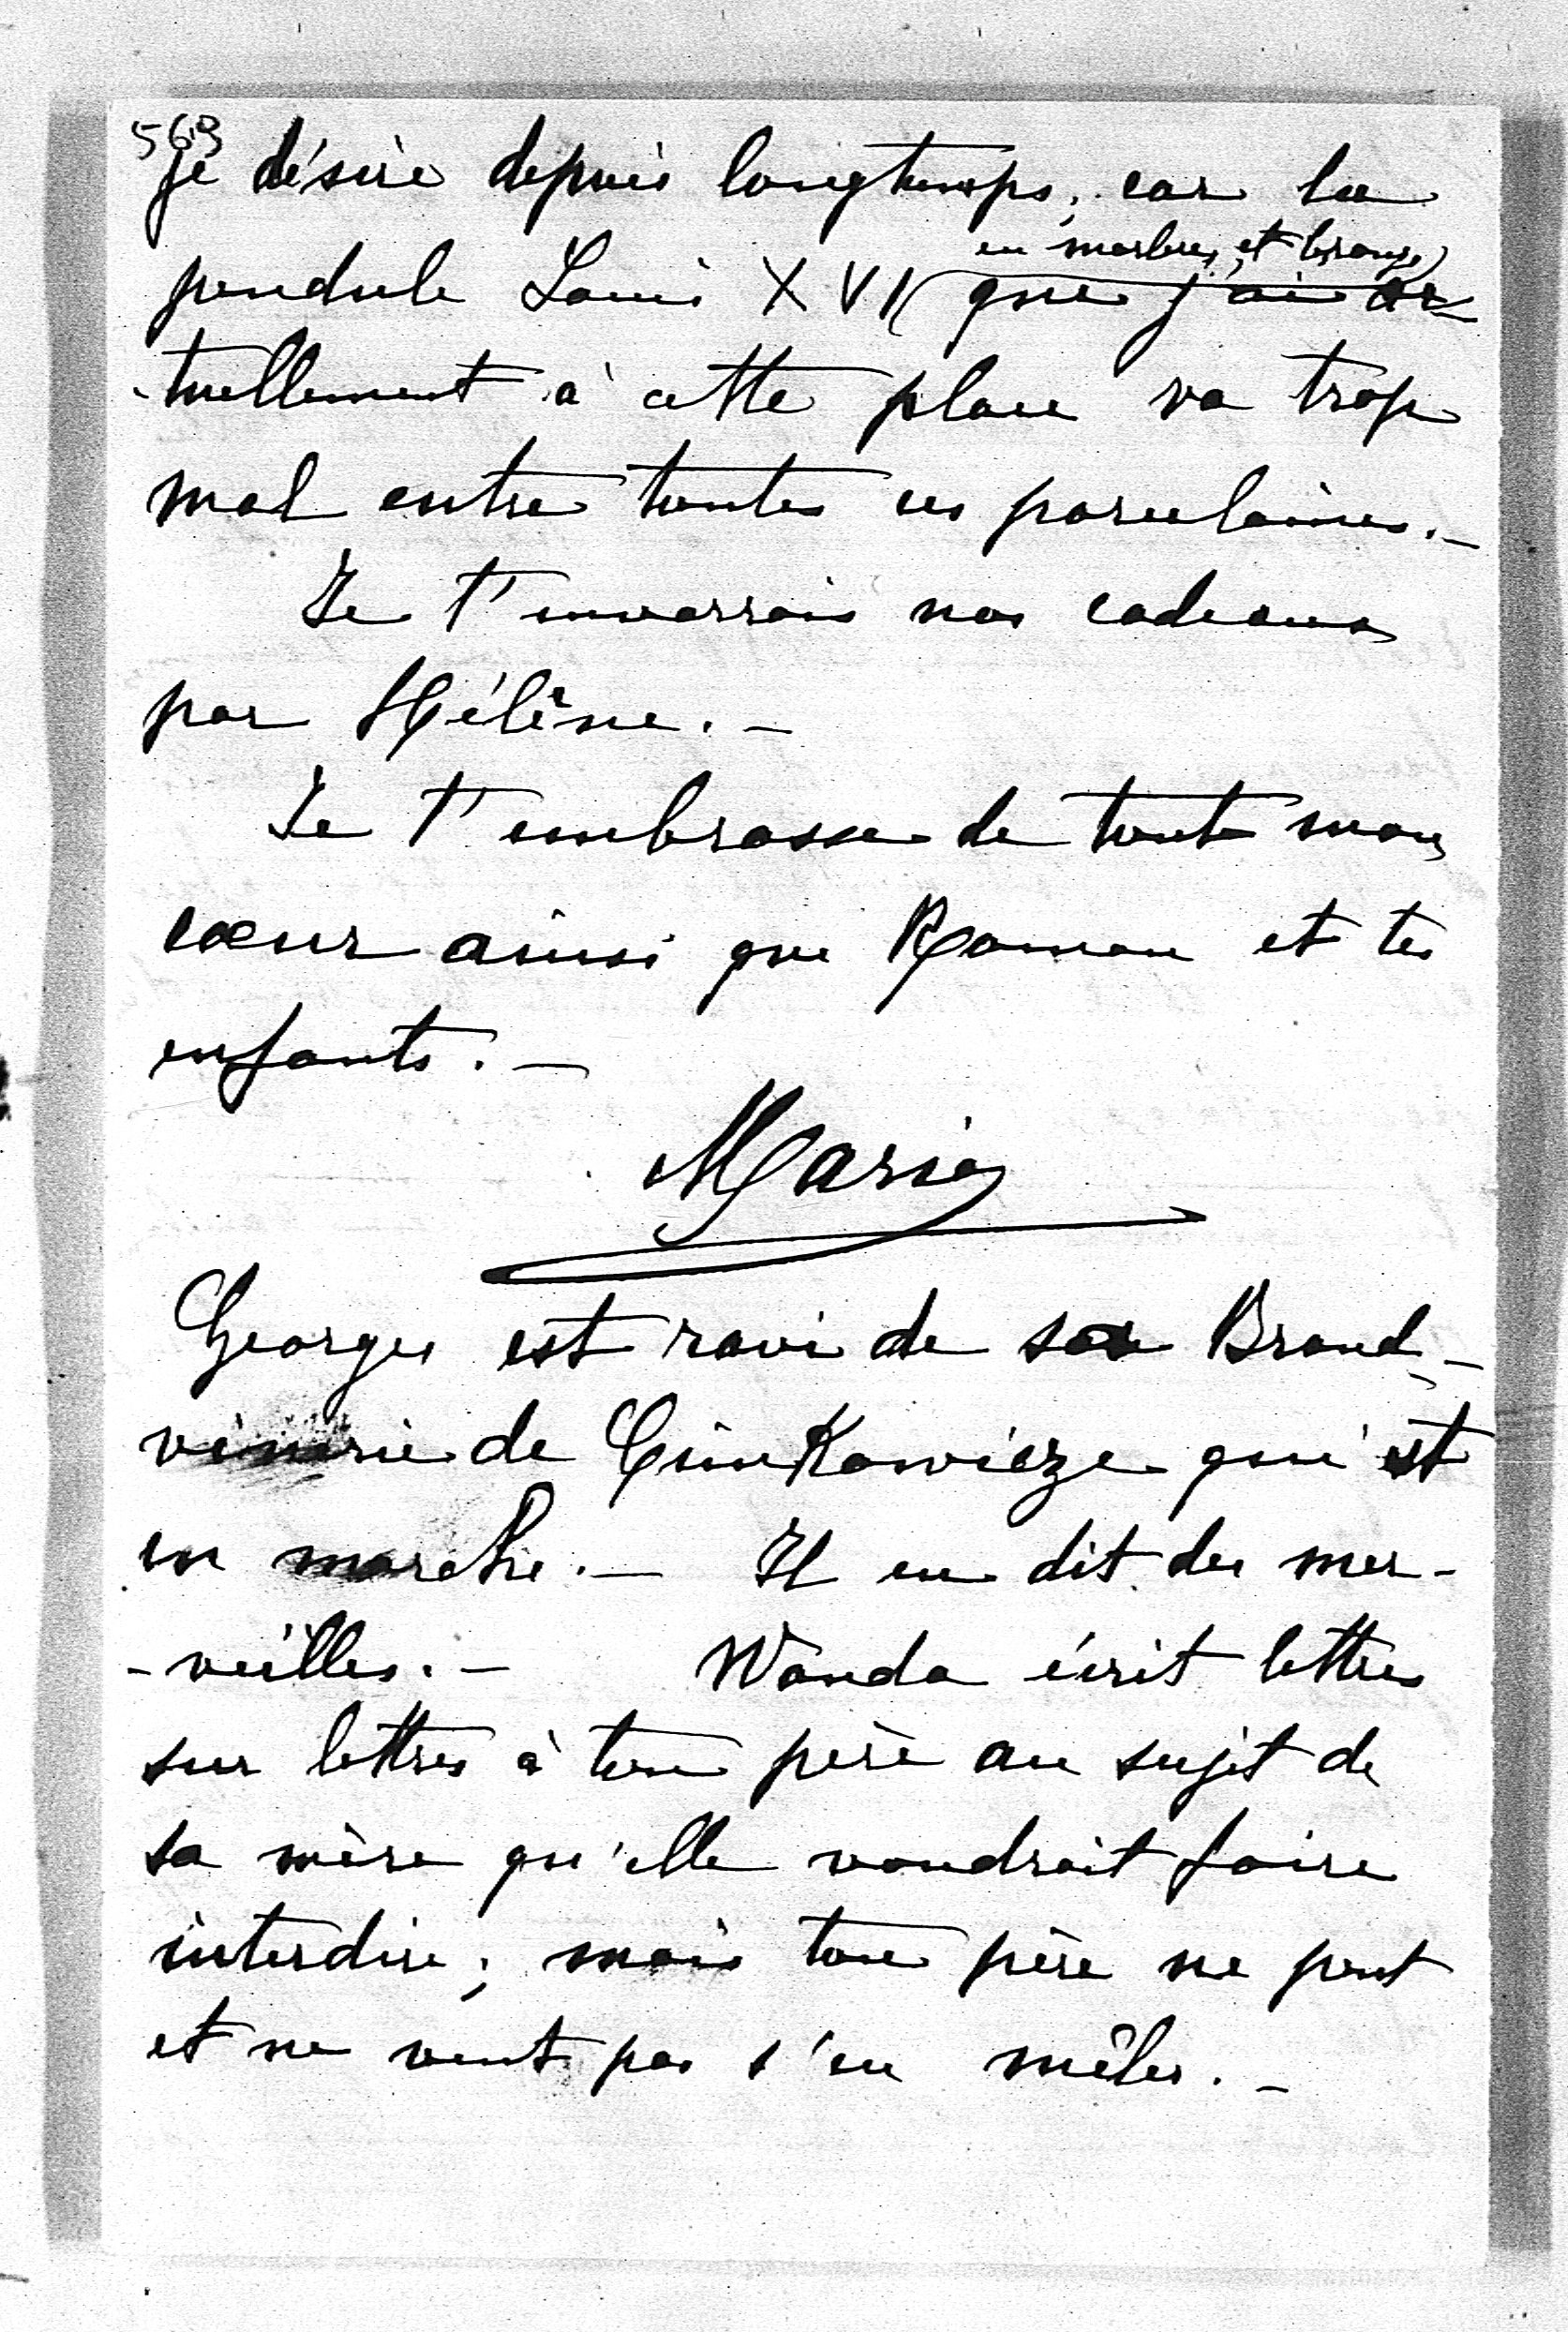 569
je désire depuis longtemps, car la
en marbre et bronze
pendule Louis XVI que j'ai ac-
-tuellement à cette place va trop
mal entre toutes ces porcelaines. -
Je t'enverrais nos cadeaux
par Hélène. -
Je t'embrasse de tout mon
cœur ainsi que Roman et tes
enfants. -
Marie
Georges est ravi de sa Brand-
vinerie de Cimkowicze qui est
en marche. - Il en dit des mer-
-veilles. - Wanda écrit lettres
sur lettres à ton père au sujet de
sa mère qu'elle voudrait faire
interdire; mais ton père ne peut
et ne veut pas s'en mêler. -